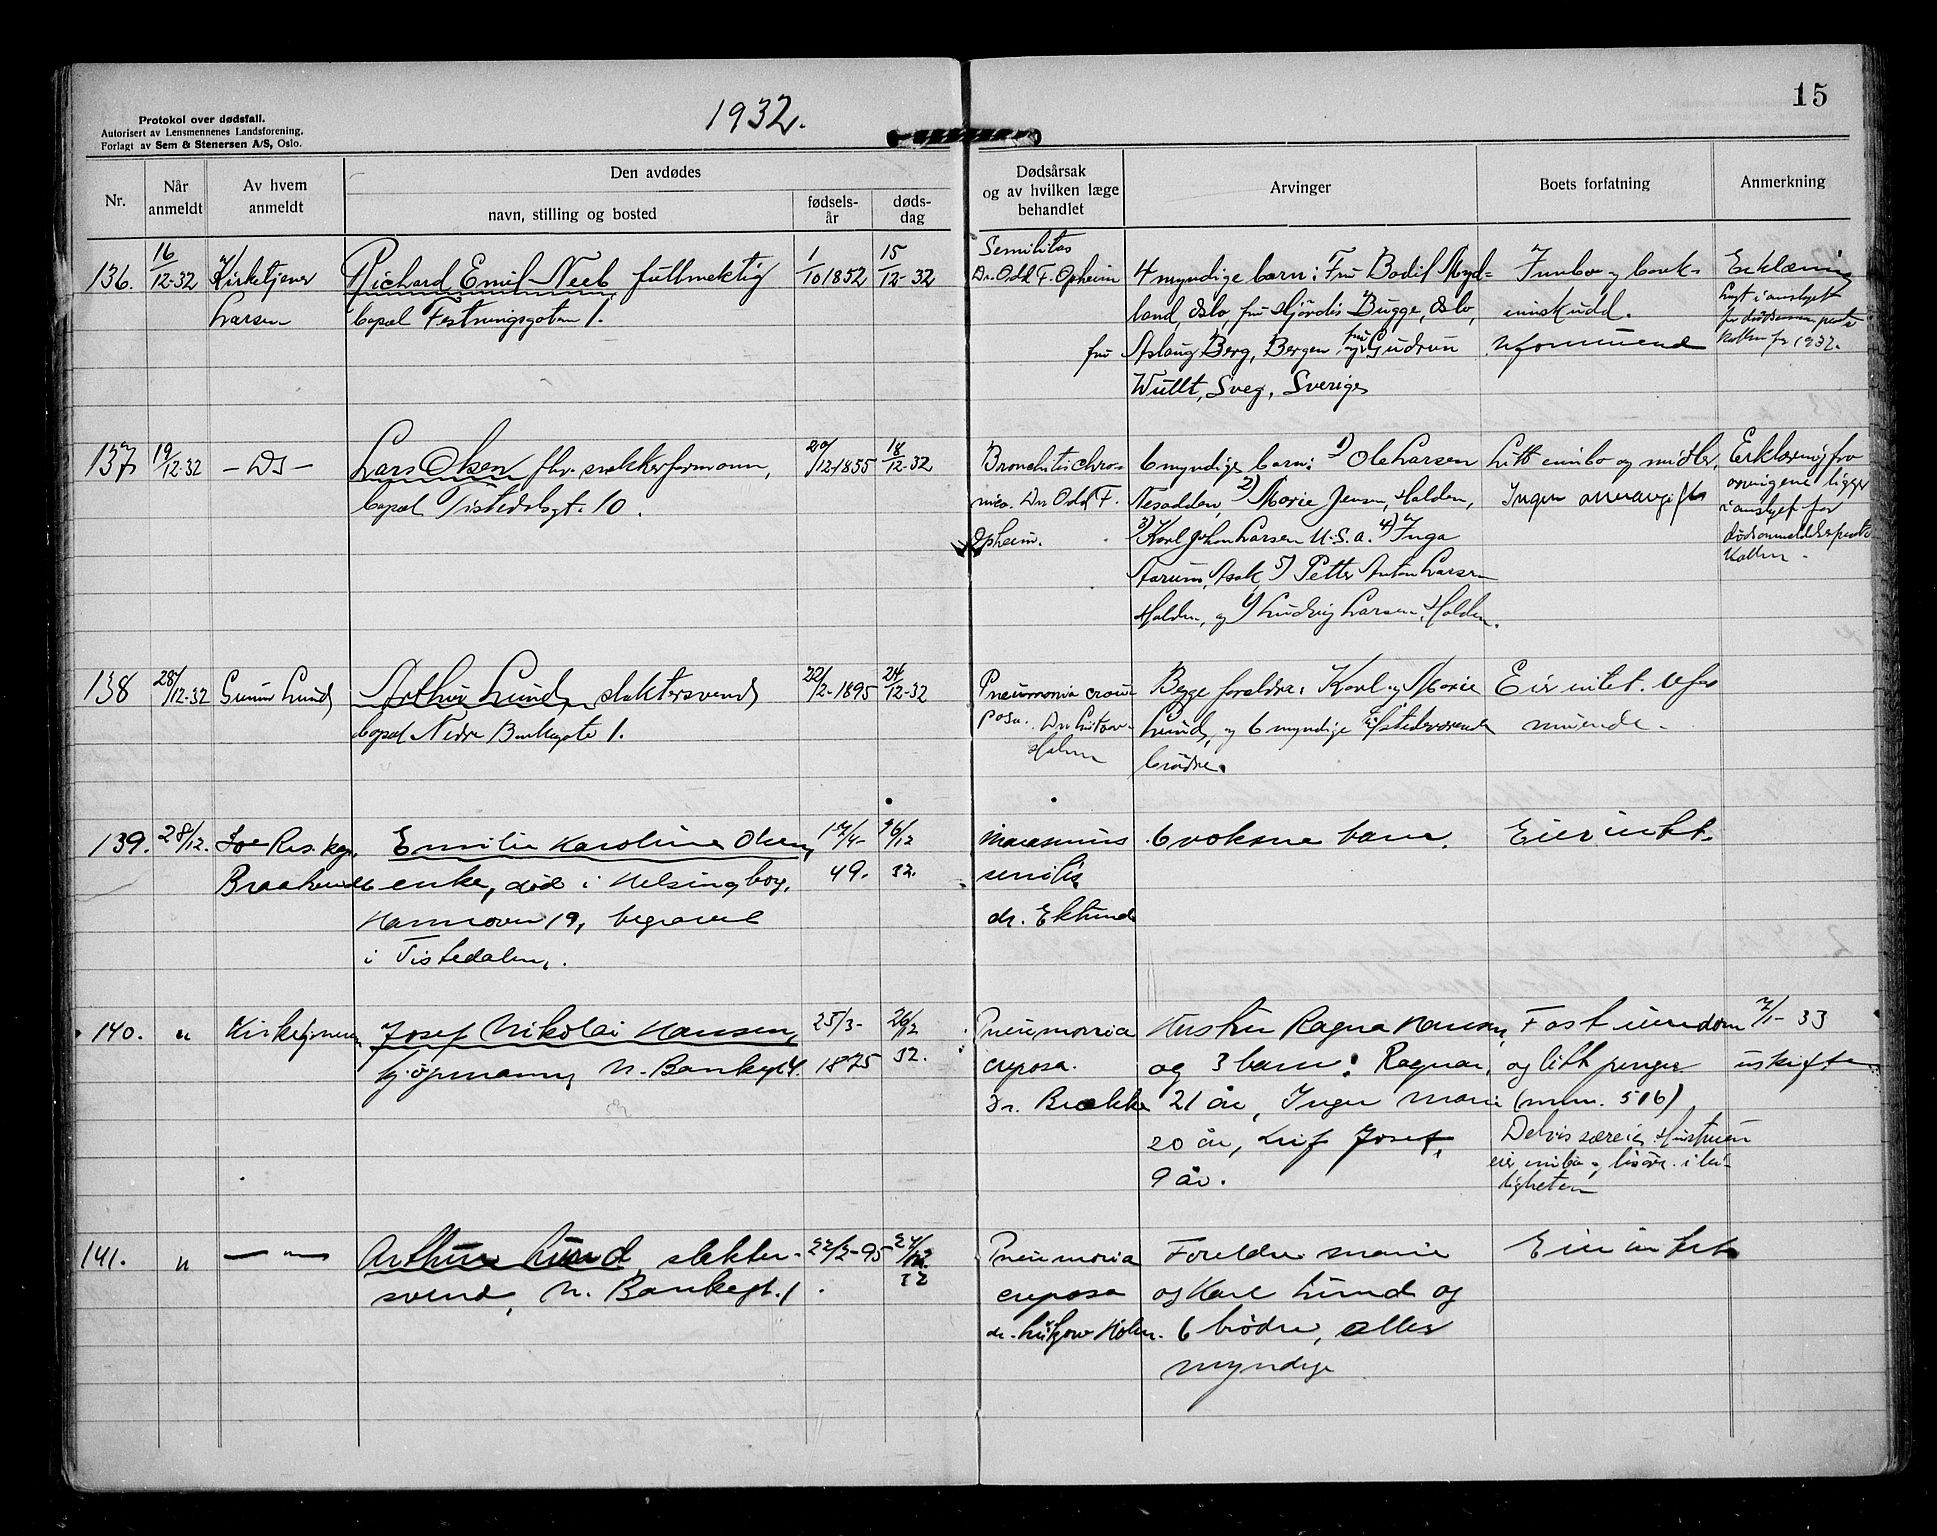 Protokol over dødsfall.
Autorisert av Lensmennenes Landsforening.
Forlagt av Sem & Stenersen A/S, Oslo.
1932.
15
Nr.
Når anmeldt
Av hvem anmeldt
Den avdødes
navn, stilling og bosted
fødsels-år
døds-dag
Dødsårsak og av hvilken læge behandlet
Arvinger
Boets forfatning
Anmerkning
136.
16/12-32
Kirketjener
Larsen
Richard Emil Neeb, fullmektig
bopæl Festningsgaten 1.
1/10 1852
15/12-32
Senilitas
Dr. Odd F. Opheim
4 myndige barn: Fru Bodil Myd-
land, Oslo, fru Hjördis Bugge, Oslo,
fru Aslaug Berg, Bergen og fru Gudrun
Wullt, Sveg, Sverige
Innbo og bank-
innskudd.
Uformuend
Erklæring
1932.
137
19/12-32
- Ds -
Lars Olsen fhv. snekkerformann,
bopæl Tistedalsgt. 10.
20/12-1855
18/12-32
Bronchitis chro-
nica. Dr. Odd F.
Opheim.
6 myndige barn: 1) Ole Larsen
Nesodden, 2) Marie Jensen, Halden,
3) Karl Johan Larsen U.S.a. 4) Inga
Aarum, Asak, 5) Petter Anton Larsen
Halden, og Ludvig Larsen, Halden.
Litt innbo og midler,
Ingen
Erklæring fra
arvingene ligger
i omslget for
138
28/12-32
Gunnar Lund
Arthur Lund, slaktersvend
bopæl Nedre Bankegate 1.
22/2-1895
24/12-32
Pneumonia crou-
posa. Dr. Lützow-
Holm
Begge foreldre: Karl og Marie
Lund, og 6 myndige tilstedeværende
brödre.
Eier intet. Ufor
muende.
139.
28/12.
Res. kap.
Braatend
Emilie Karoline Olsen,
enke, død i Helsingborg,
Hannover 19, begravet
i Tistedalen.
17/4-
49.
16/12
32.
Marasmus
senilis
dr. Eklund
6 voksne barn.
Eier intet.
140.
"
Kirketjeneren
Josef Nikolai Hansen,
kjøpmann, N. Bankegt 4.
25/3-
1875
26/12
32.
Pneumonia
cruposa.
Dr. Brække
Hustru Ragna Hansen,
og 3 barn: Ragnar,
21 år, Inger Marie
20 år, Leif Josef,
9 år.
Fast eiendom
og litt penger
(mnr. 516)
Delvis særeie. Hustruen
eier innbo og
7/1-33
uskiftet
141.
"
— " —
Arthur Lund, slakter-
svend, N. Bankegt. 1
22/2-95
24/12
32
Pneumonia
cruposa
dr. Lützow Holm.
Foreldre Marie
og Karl Lund og
6 brødre, alle
myndige
Eier intet